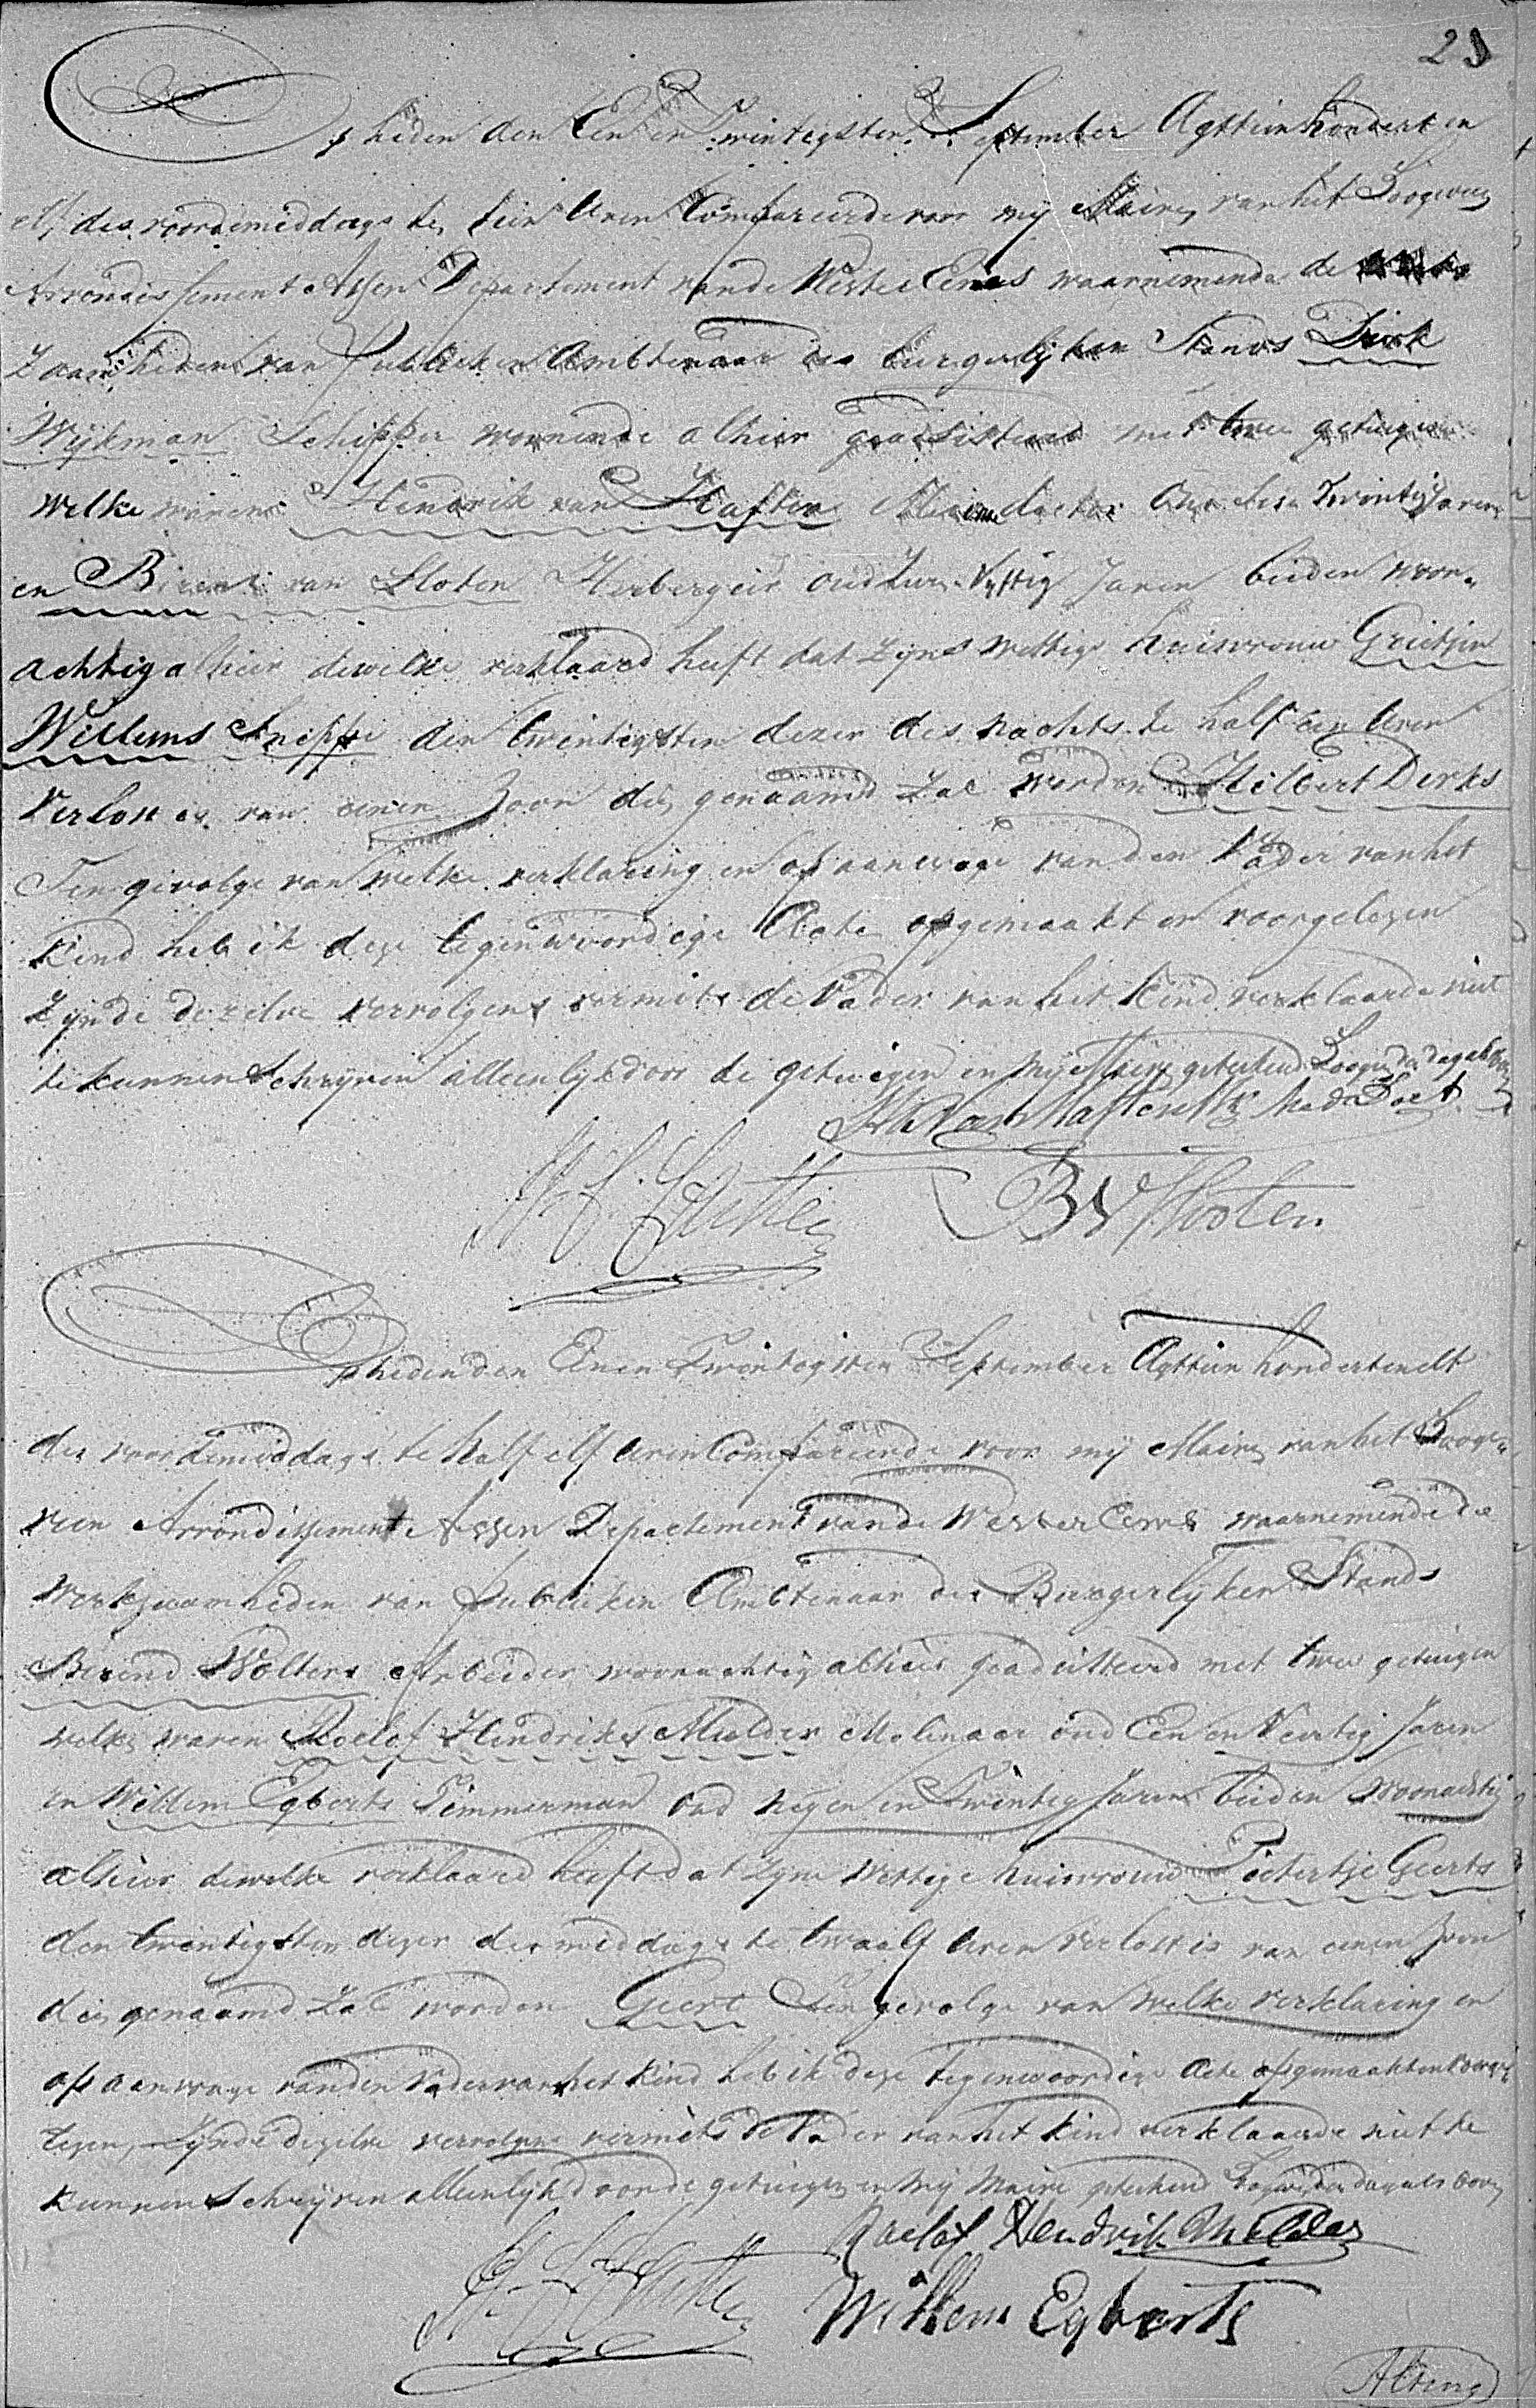 23
Op heden den Een en Twintigsten September Agttien hondert en
elf des voordemiddags te tien Uren Compareerde voor mij Maire van het Hoogeveen
Arrondissement Assen Departement van de Wester Eems waarnemende de
Zaamheden van Publieken Ambtenaar des burgerlijken Stands Dirk
Wijkman Schipper wonende alhier geadsisteerd met twee getuigen
welke waren Hendrik van Haften Doctor Oud Twintig Jaren
en Berend van Sloten Herbergier oud Vyftig Jaren beiden woon-
achtig alhier dewelke verklaard heeft dat zyne wettige huisvrouw Grietjen
Willems Sneppe den twintigsten dezer des nachts te half een Uren
Verlost is van eenen Zoon die genaamd zal worden Hilbert Derks
Ten gevolge van welke verklaring en op aanvrage van den Vader van het
Kind heb ik deze tegenwoordige Acte opgemaakt en voorgelezen
Zijnde dezelve vervolgens vermits de Vader van het Kind verklaarde niet
te kunnen Schryven alleenlyk door de getuigen en mij Maire getekend Hoogeveen dag als boven
H. van Haften Med. Doct.
B V Slooten
Op heden den Eenen Twintigsten September Agttien hondert en elf
des voordemiddags te half elf Uren Compareerde voor mij Maire van het Hooge-
veen Arrondissement Assen Departement van de Wester Eems waarnemende de
werkzaamheden van Publieken Ambtenaar des Burgerlijken Stands
Berend Wolters Arbeider woonachtig alhier geadsisteerd met twee getuigen
welke waren Roelof Hendriks Mulder Molenaar oud Een en Veertig Jaren
en Willem Egberts Timmerman oud negen en Twintig Jaren beiden Woonachtig
alhier dewelke verklaard heeft dat zyne wettige huisvrouw Pietertje Geerts
den twintigsten dezer des middags te twaalf Uren verlost is van eenen Zoon
die genaamd zal worden Geert Ten gevolge van welke verklaring en
op aanvrage van den Vader van het Kind heb ik deze tegenwoordige Acte opgemaakt en voorge
lezen, Zynde dezelve vervolgens vermits de Vader van het Kind verklaarde niet te
kunnen Schryven alleenlijk door de getuigen en mij Maire getekend Hoogeveen dag als boven
Roelof Hendrik Mulder
Willem Egberts
Alting